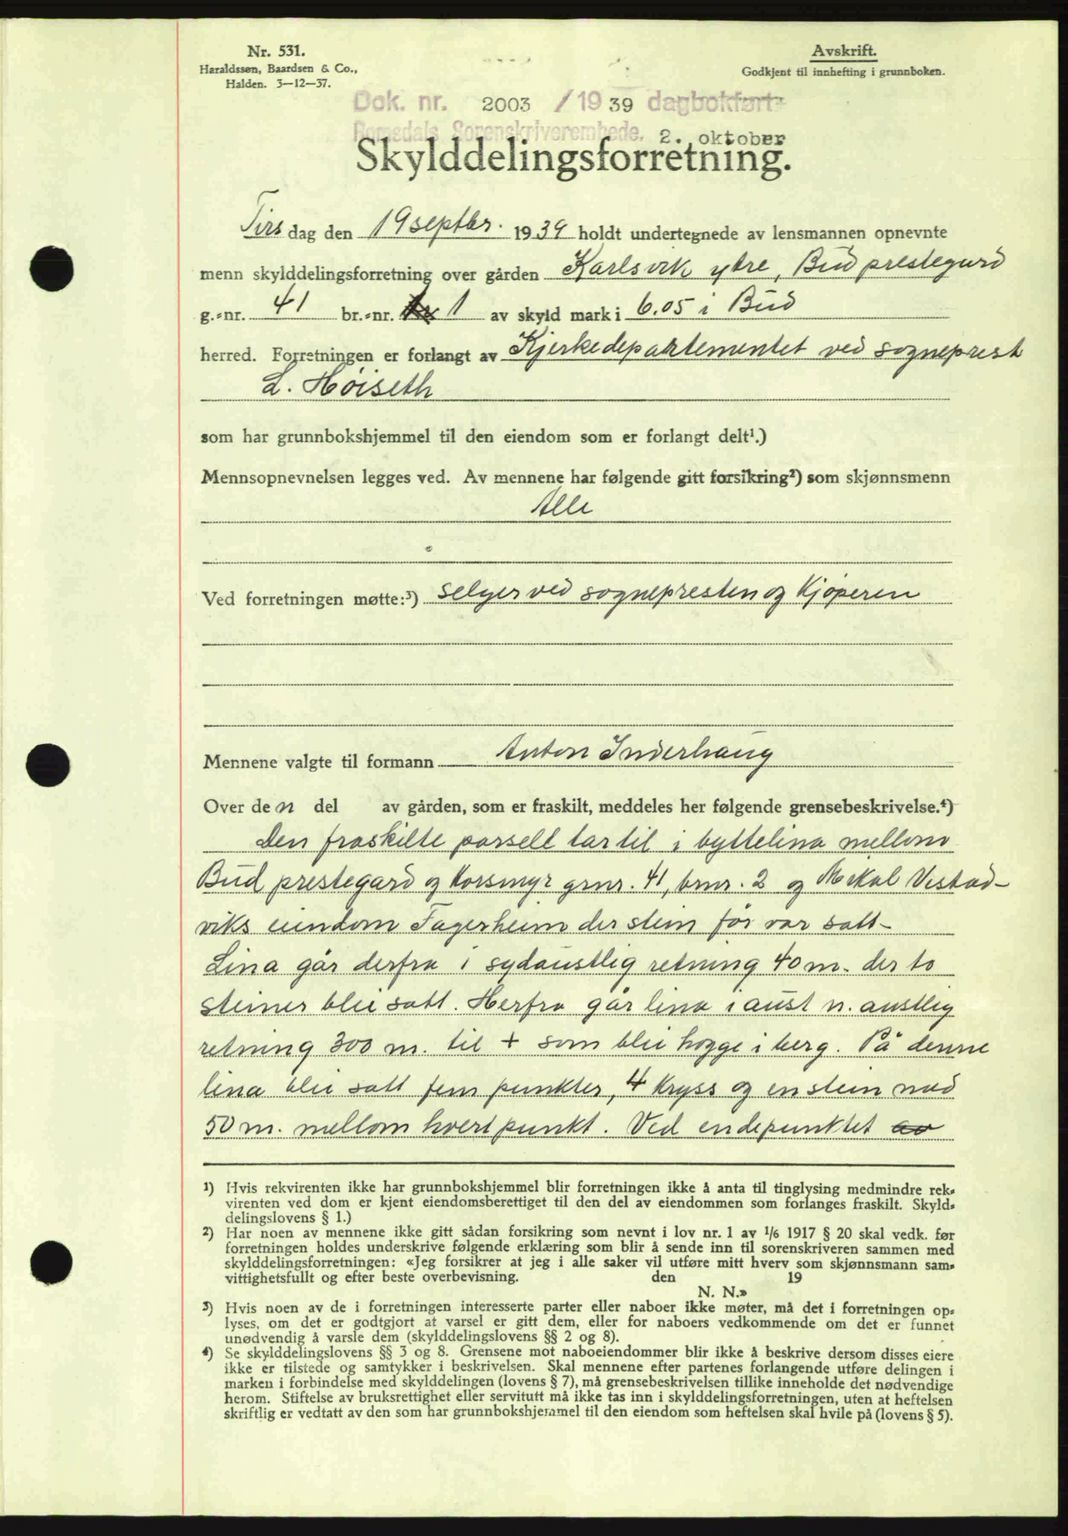 Nr. 531.
Haraldssen, Baardsen & Co.,
Halden. 3—12—37.
Avskrift.
Godkjent til innhefting i grunnboken.
Dok. nr. 2003 / 19 39 dagbokført
Romsdals Sorenskriverembede. 2. oktober
Skylddelingsforretning.
Tirsdag den 19 septbr. 1939 holdt undertegnede av lensmannen opnevnte
menn skylddelingsforretning over gården Karlsvik ytre, Bud prestegard
g.-nr. 41 br.-nr. 1 av skyld mark i 6.05 i Bud
herred. Forretningen er forlangt av Kjerkedepartementet ved sogneprest
L. Høiseth
som har grunnbokshjemmel til den eiendom som er forlangt delt¹.)
Mennsopnevnelsen legges ved. Av mennene har følgende gitt forsikring²) som skjønnsmenn
Alle
Ved forretningen møtte:³) selger ved sognepresten og Kjøperen
Mennene valgte til formann Anton Inderhaug
Over de n del av gården, som er fraskilt, meddeles her følgende grensebeskrivelse.⁴)
Den fraskilte parsell tar til i byttelina mellom
Bud prestegard og Korsmyr grnr. 41, brnr. 2 og Mikal Vestad-
viks eiendom Fagerheim der stein før var satt-
Lina går derfra i sydaustlig retning 40 m. der to
steiner blei satt. Herfra går lina i aust n. austlig
retning 300 m. til + som blei hogge i berg. På denne
lina blei satt fem punkter, 4 Kryss og en stein med
50 m. mellom hvert punkt. Ved endepunktet av
¹) Hvis rekvirenten ikke har grunnbokshjemmel blir forretningen ikke å anta til tinglysing medmindre rek-
virenten ved dom er kjent eiendomsberettiget til den del av eiendommen som forlanges fraskilt. Skyld-
delingslovens § 1.)
²) Har noen av mennene ikke gitt sådan forsikring som nevnt i lov nr. 1 av ¹/₆ 1917 § 20 skal vedk. før
forretningen holdes underskrive følgende erklæring som blir å sende inn til sorenskriveren sammen med
skylddelingsforretningen: «Jeg forsikrer at jeg i alle saker vil utføre mitt hverv som skjønnsmann sam-
vittighetsfullt og efter beste overbevisning. den 19
N. N.»
³) Hvis noen av de i forretningen interesserte parter eller naboer ikke møter, må det i forretningen op-
lyses, om det er godtgjort at varsel er gitt dem, eller for naboers vedkommende om det er funnet
unødvendig å varsle dem (skylddelingslovens §§ 2 og 8).
⁴) Se skylddelingslovens §§ 3 og 8. Grensene mot naboeiendommer blir ikke å beskrive dersom disses eiere
ikke er tilstede og samtykker i beskrivelsen. Skal mennene efter partenes forlangende utføre delingen i
marken i forbindelse med skylddelingen (lovens § 7), må grensebeskrivelsen tillike inneholde det nødvendige
herom. Stiftelse av bruksrettighet eller servitutt må ikke tas inn i skylddelingsforretningen, uten at heftelsen
skriftlig er vedtatt av den som har grunnbokshjemmel til den eiendom som heftelsen skal hvile på (lovens § 5).